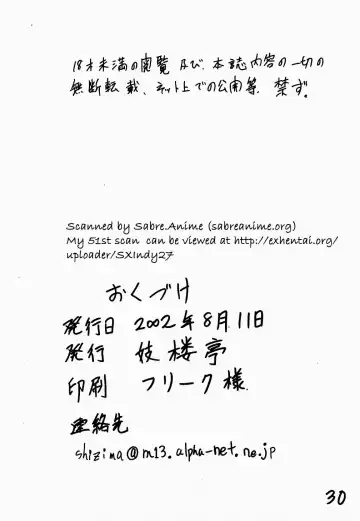 18才未満の閲覧及び、本誌内容の一切の
無断転載、ネット上での公開等、禁ず。
Scanned by Sabre.Anime (sabreanime.org)
My 51st scan can be viewed at http://exhentai.org/
uploader/SXIndy27
おくづけ
発行日 2002年8月11日
発行 妓楼亭
印刷 フリーク様
連絡先
shizima@m13.alpha-net.ne.jp
30